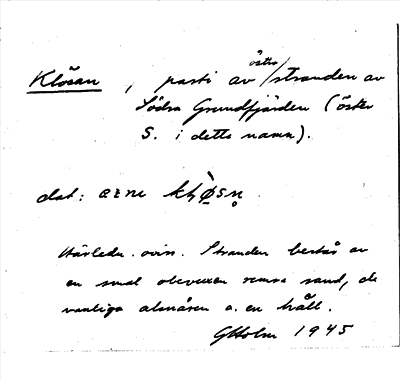 Klösan, parti av östra/stranden av
Södra Grundfjärden (öster
S. i detta namn).
dat: arne
Härledn. ovis. Stranden består av
en smal obevuxen remsa sand, de
vanliga alnåren o. en håll.
GHolm 1945